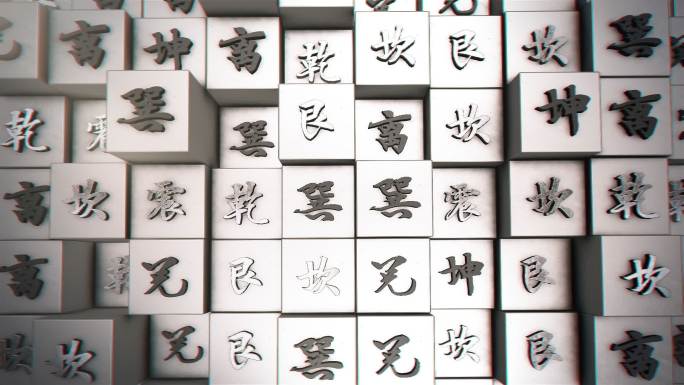 离 坤 离 乾 坎 艮 坎 巽
巽 坤
乾 震 巽 艮 离 坎 离
离 坎 震 乾 巽 巽 震 坎 乾
离 乾 兑 艮 坎 兑 坤 艮 坎
坎 兑 艮 巽 兑 坎 艮 离